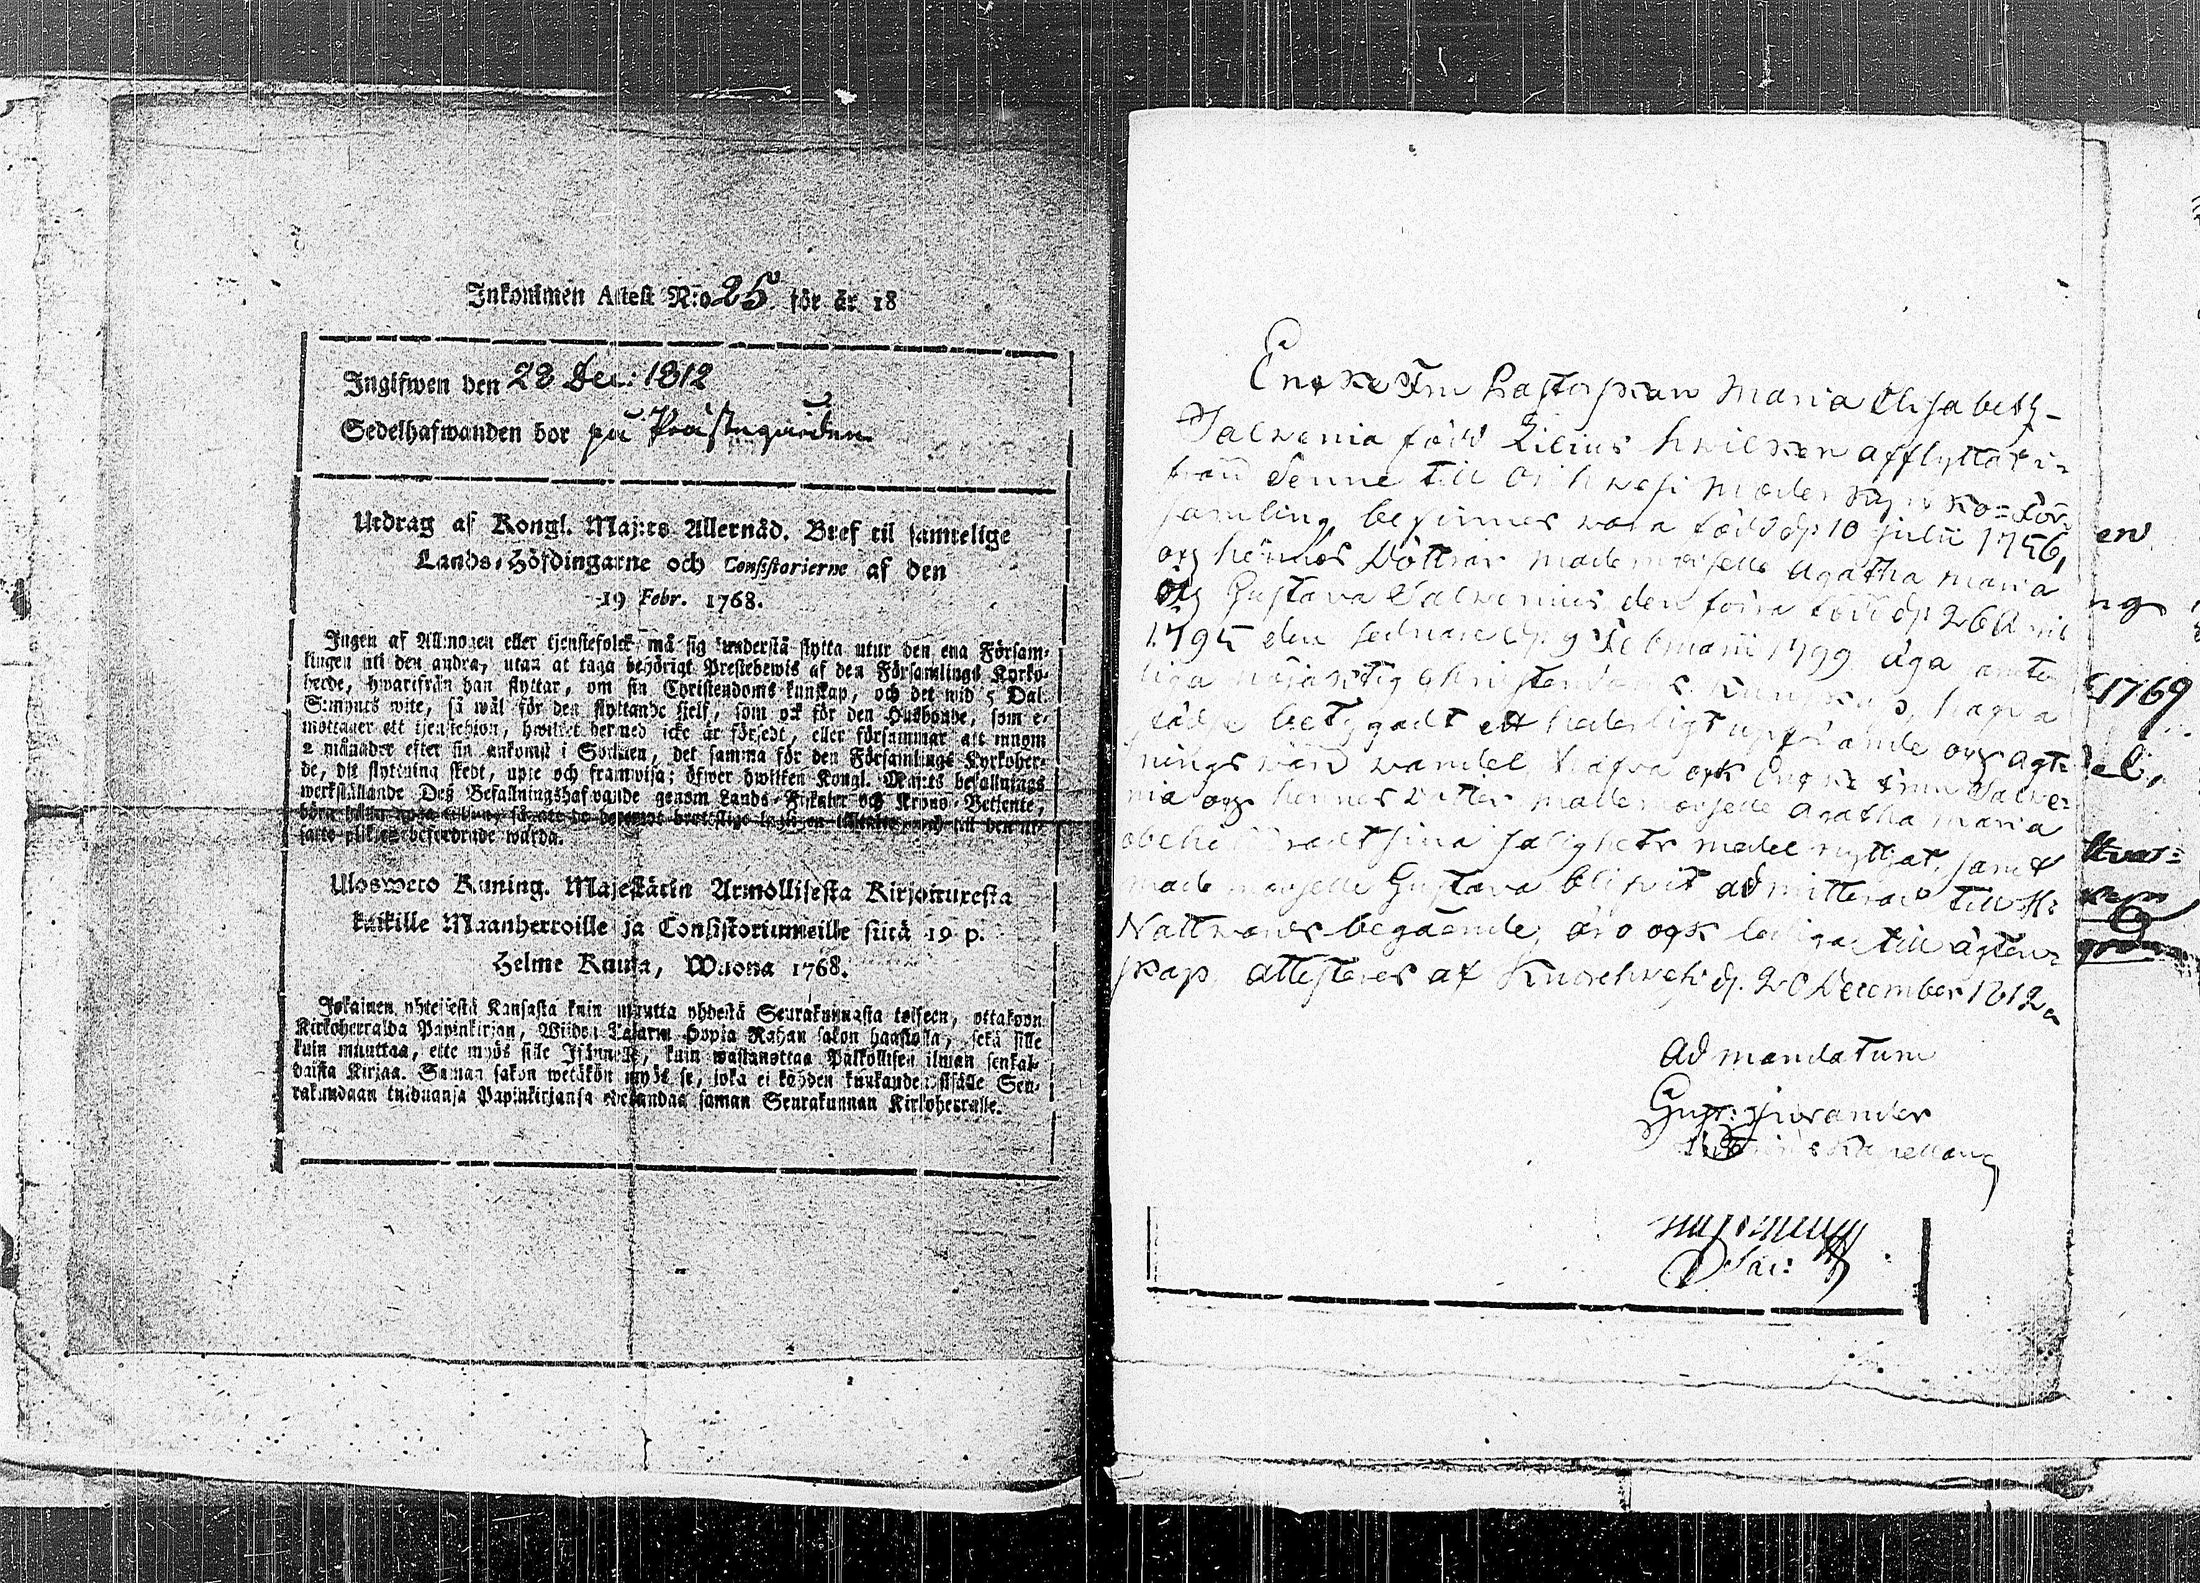 Inkommen Attest N:o 25. för år 18
Inglfwen den 28 Dec: 1812
Sedelhafwanden bor på Prästegården
Utdrag af Kongl. Maj:ts Allernåd. Bref til samtelige
Lands-Höfdingarne och Consistorierne af den
19 Febr. 1768.
Ingen af Allmogen eller tjenstefolck må sig understå flytta utur den ena Försam-
lingen uti den andra, utan at taga behörigt Prestebewis af den Församlings Kyrko-
herde, hwarifrån han flyttar, om sin Christendoms-kunskap, och det wid 5 Dal.
S:mynts wite, så wäl för den flyttande sielf, som ock för den Husbonde, som e-
mottager ett tjenstehion, hwilket hermed icke är försedt, eller försummar att innom
2 månader efter sin ankomst i Socknen, det samma för den Församlings Kyrkoher-
de, dit flyttning skedt, upte och framwisa; öfwer hwilken Kongl. Maj:ts befallnings
werkställande Deß Befallningshafwande genom Lands-Fiskaler och Krono-Betiente,
satte plikt befordrade warda.
Uloswero Kuning. Majestätin Armollisesta Kirjoituxesta
kaikille Maanherroille ja Consistoriumeille siitä 19 p.
Helme Kuusa, Wuona 1768.
Jokainen yhteisestä Kansasta kuin muutta yhdestä Seurakunnasta toiseen, ottakoon
Kirkoherralda Papinkirjan, Wijden Talarin Hopia Rahan sakon haastolla, sekä sille
kuin muuttaa, ette myös sille Isännelle, kuin wastanottaa Palkollisen ilman senkal-
daista Kirjaa. Saman sakon wetäkön myös se, joka ei kahden kuukauden sisälle Seu-
rakundaan tulduansa Papinkirjansa edesandaa saman Seurakunnan Kirkoherralle.
Enke Fru Pastorskan Maria Elisabeth
Salvenia född Lilius hvilken afflyttar i-
från denne till Orihvesi Moder Kyrko-För-
samling, befinnes vara född d. 10 Julii 1756,
och hennes Döttrar mademoiselle Agatha Maria
och Gustava Salvenius den förra född d. 26 April
1795 den sednare d. 9 Februarii 1799 äga
Christendoms kunskap, hafva
betygadt ett hederligt uppförande och agt-
nings värd vandel hafva ock Enke Frun Salve-
nia och hennes dotter mademoiselle Agatha Maria
obehindradt sina salighets medel nyttjat, samt
mademoiselle Gustava blifvit admitterad till H:
Nattvards begående, äro ock ledige till ägten-
skap, attesteras af Kuorehvesi d. 20 December 1812
Ad mandatum
en
1769